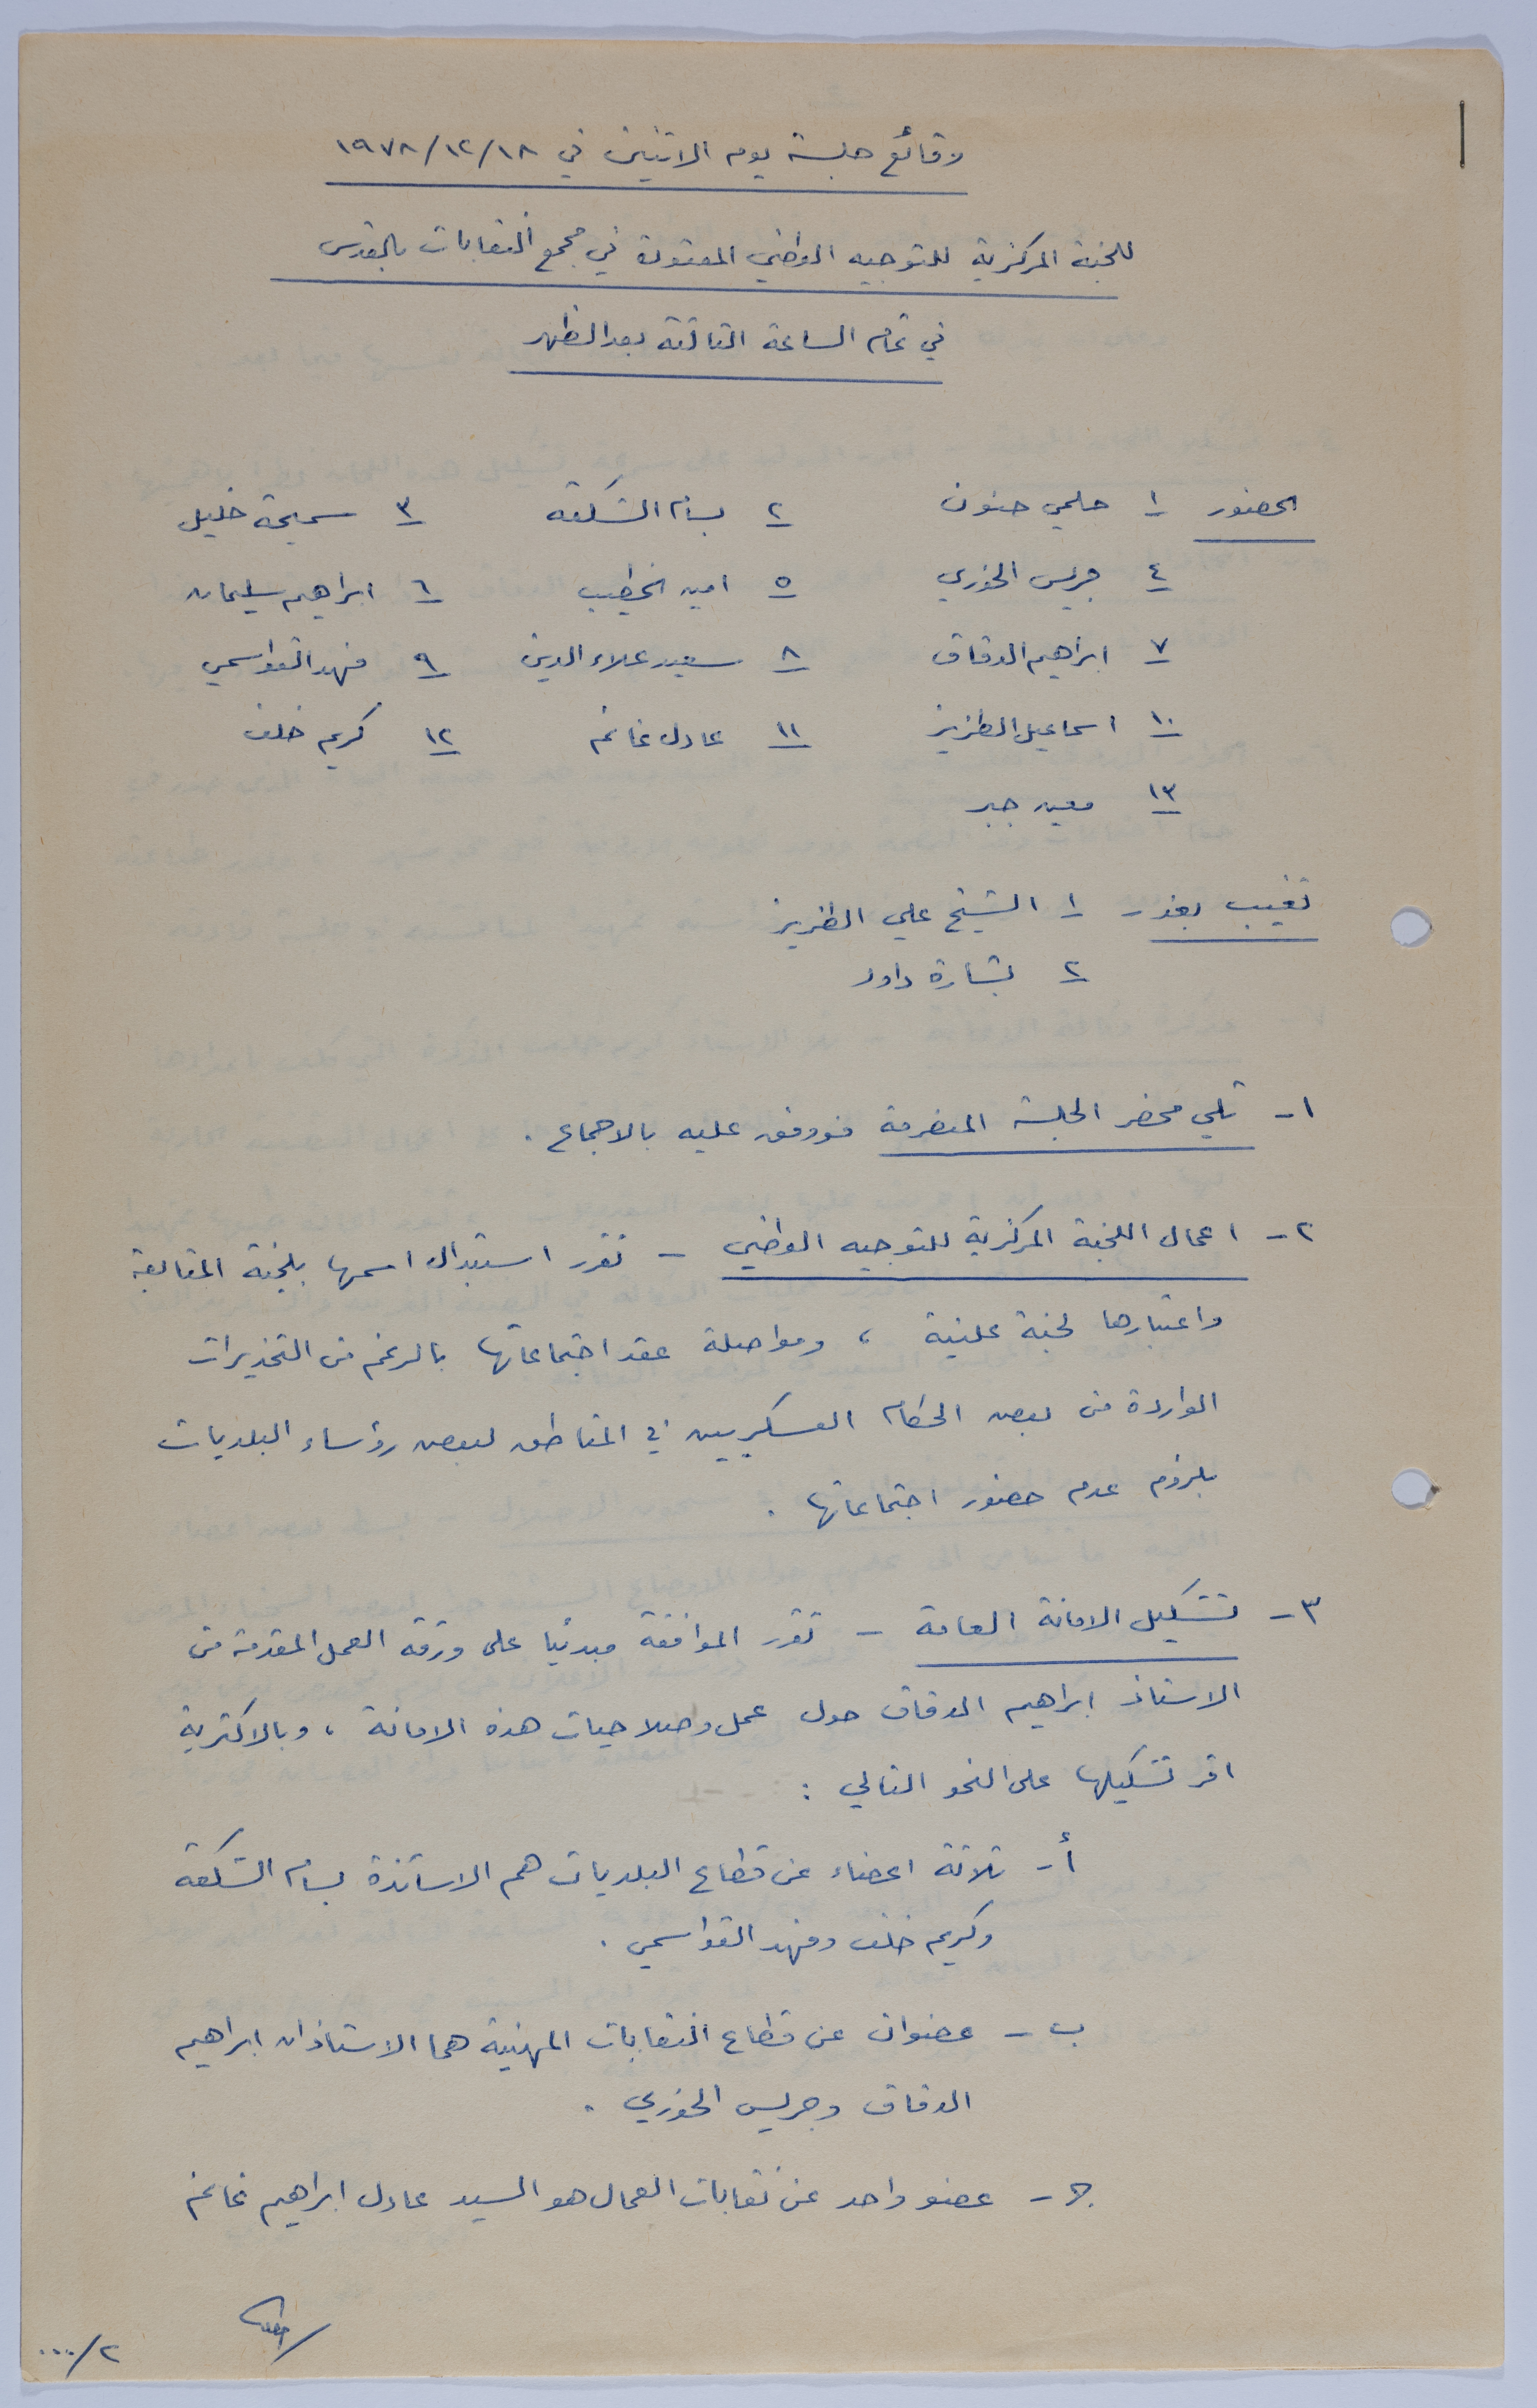 وقائع جلسة يوم الاثنين في ١٩٧٨/١٢/١٨
للجنة المركزية للتوجيه الوطني المعقودة في مجمع النقابات بالقدس
في تمام الساعة الثالثة بعد الظهر
الحضور ١ حلمي حنون ٢ بسام الشكعة ٣ سميحة خليل
٤ جريس الخوري ٥ امين الخطيب ٦ ابراهيم سليمان
٧ ابراهيم الدقاق ٨ سعيد علاء الدين ٩ فهد القواسمي
١٠ اسماعيل الطزيز ١١ عادل غانم ١٢ كريم خلف
١٣ معين جبر
تغيب بعذر - ١ الشيخ علي الطزيز
٢ بشارة داود
١ - تلي محضر الجلسة المنصرمة فووفق عليه بالاجماع .
٢ - اعمال اللجنة المركزية للتوجيه الوطني - تقرر استبدال اسمها بلجنة المتابعة
واعتبارها لجنة علنية ، ومواصلة عقد اجتماعاتها بالرغم من التحذيرات
الواردة من بعض الحكام العسكريين في المناطق لبعض رؤساء البلديات
بلزوم عدم حضور اجتماعاتها .
٣ - تشكيل الامانة العامة - تقرر الموافقة مبدئيا على ورقة العمل المقدمة من
الاستاذ ابراهيم الدقاق حول عمل وصلاحيات هذه الامانة ، وبالاكثرية
اقر تشكيلها على النحو التالي :
أ - ثلاثة اعضاء عن قطاع البلديات هم الاساتذة بسام الشكعة
وكريم خلف وفهد القواسمي .
ب - عضوان عن قطاع النقابات المهنية هما الاستاذان ابراهيم
الدقاق وجريس الخوري .
ج - عضو واحد عن نقابات العمال هو السيد عادل ابراهيم غانم
٢/...